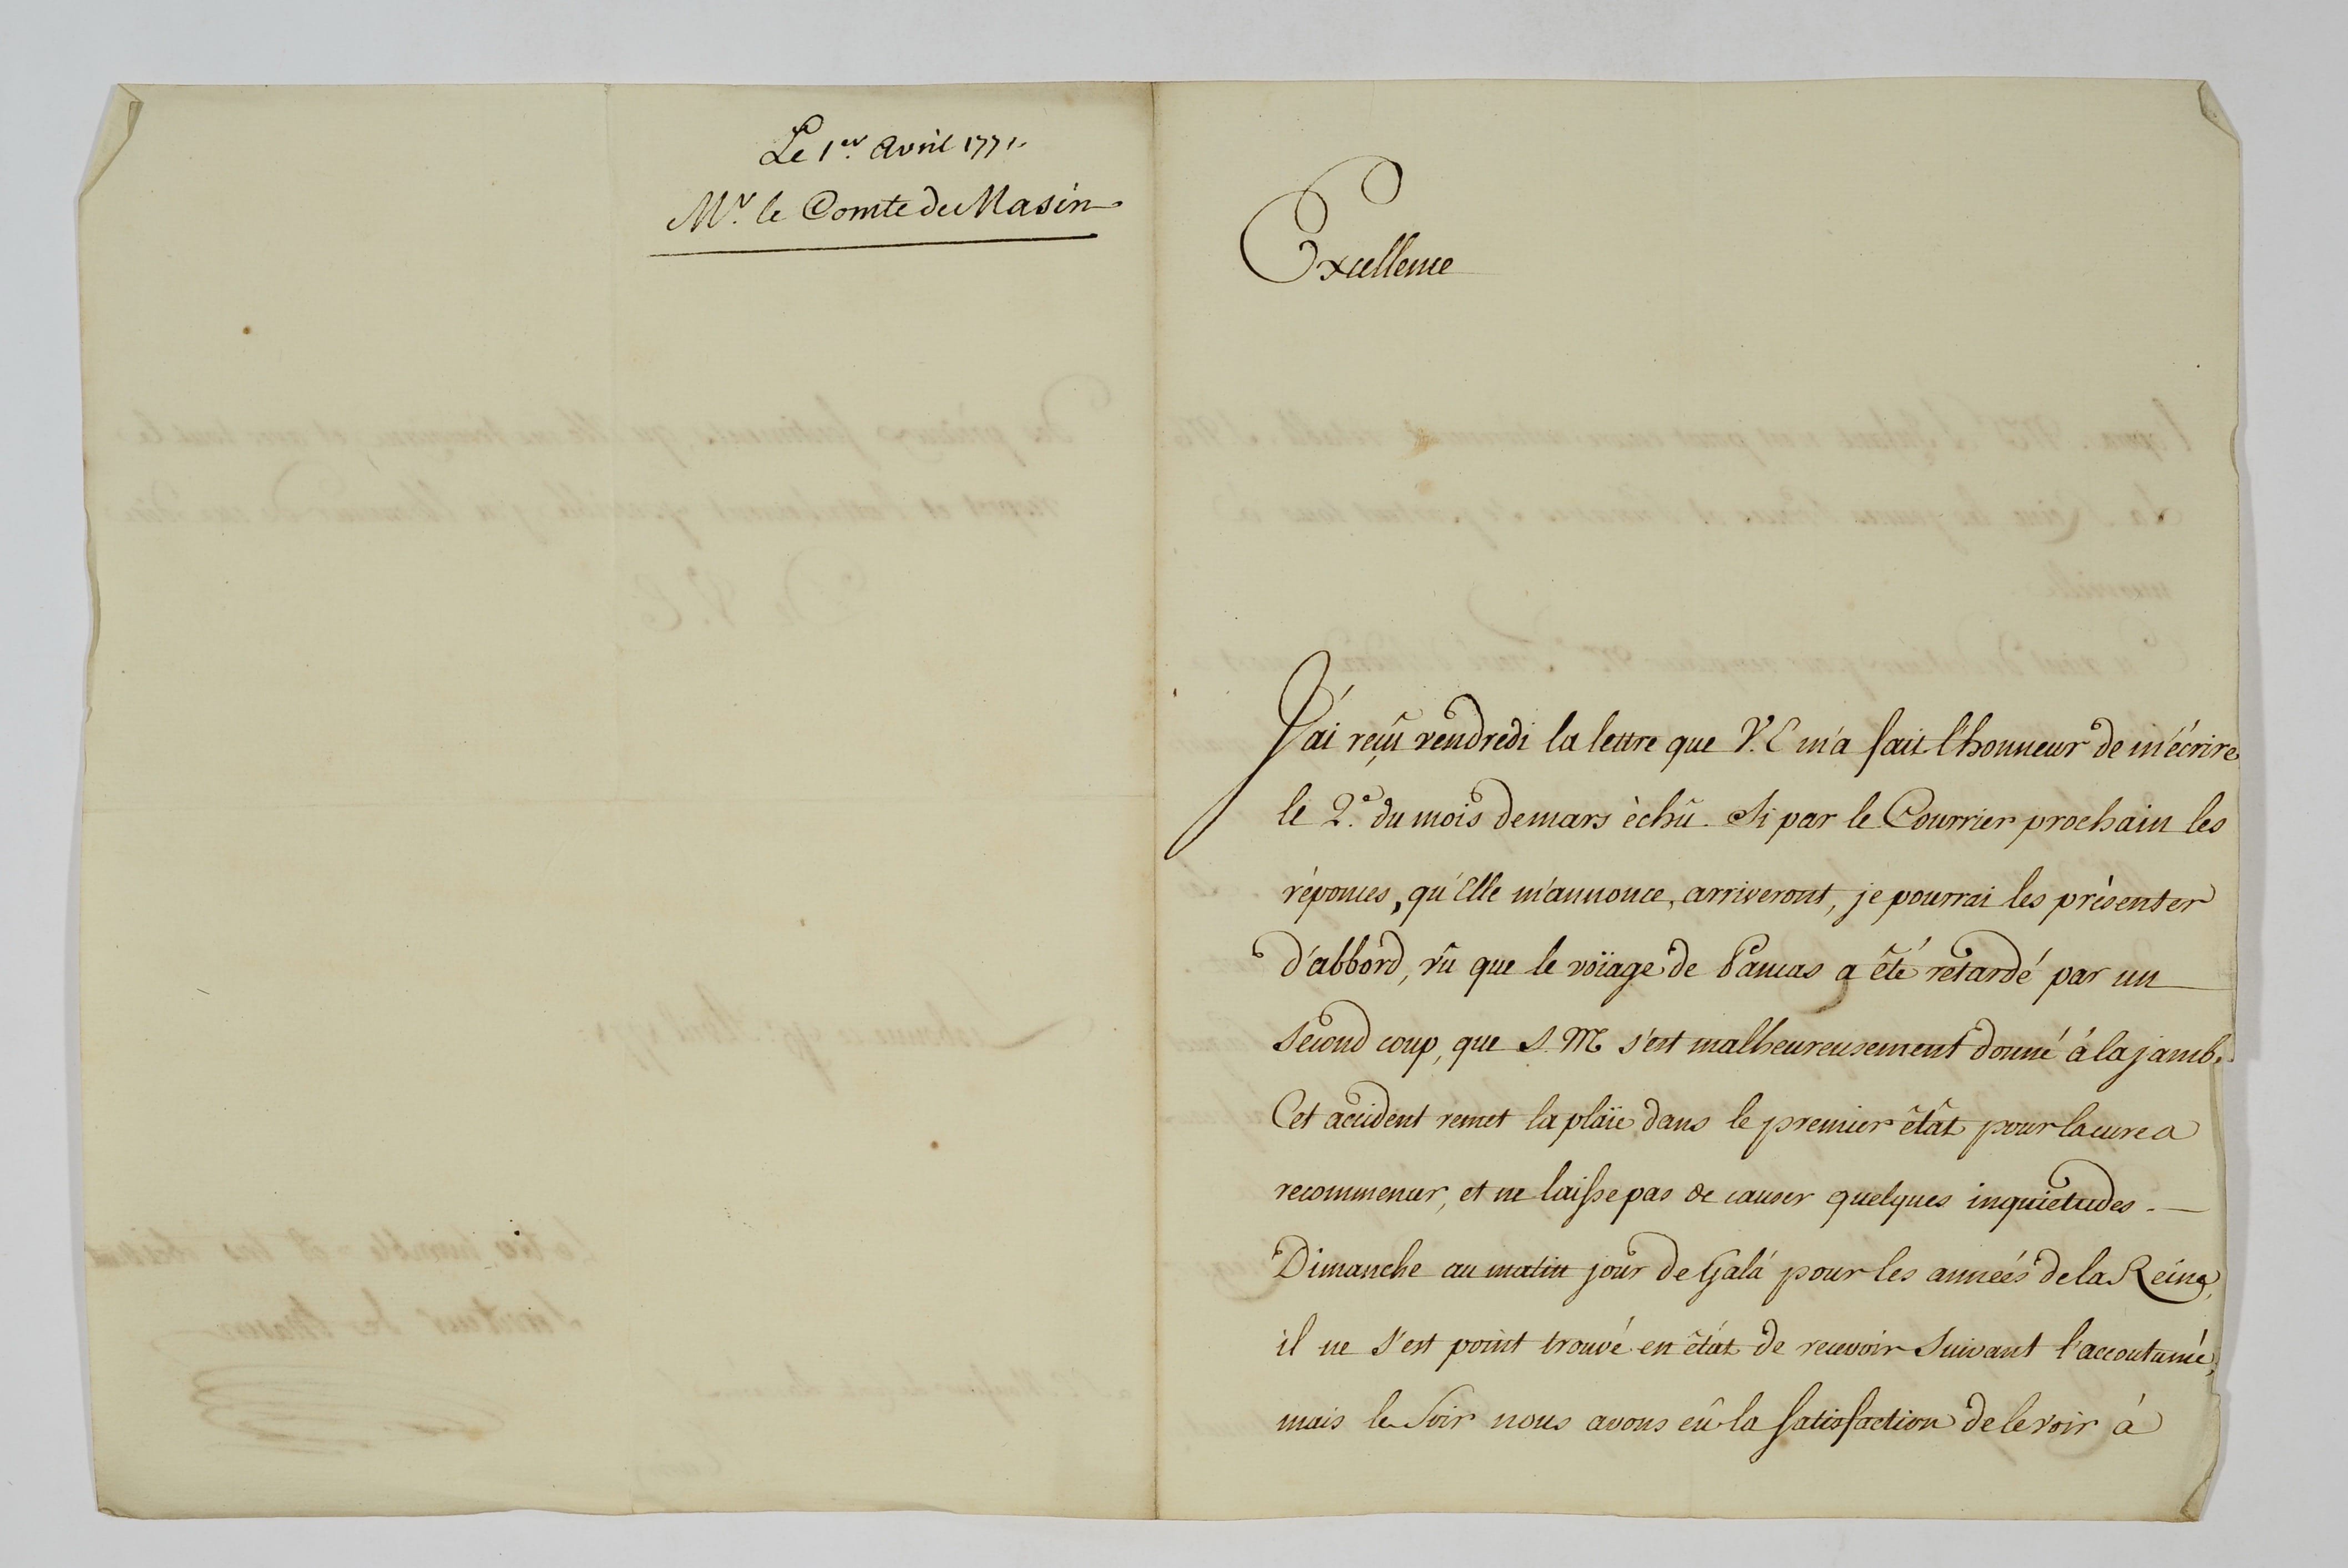 Le 1er. Avril 1771.
Mr. le Comte de Masin
Excellence
J'ai reçû vendredi la lettre que V.E m'a fait l'honneur de m'écrire
le 2e. du mois de mars èchû. Si par le Courrier prochain les
réponces, qu'Elle m'annonce, arriveront, je pourrai les présenter
d'abbord, vû que le voïage de Pancas a été retardé par un
second coup, que S.M s'est malheureusement donné à la jambe.
Cet accident remet la plaïe dans le premier êtât pour la cure a
recommencer, et ne laisse pas de causer quelques inquiétudes.
Dimanche au matin jour de Galá pour les années de la Reine,
il ne s'est point trouvé en êtát de recevoir suivant l'accoutumé,
mais le soir nous avons eû la satisfaction de le voir à